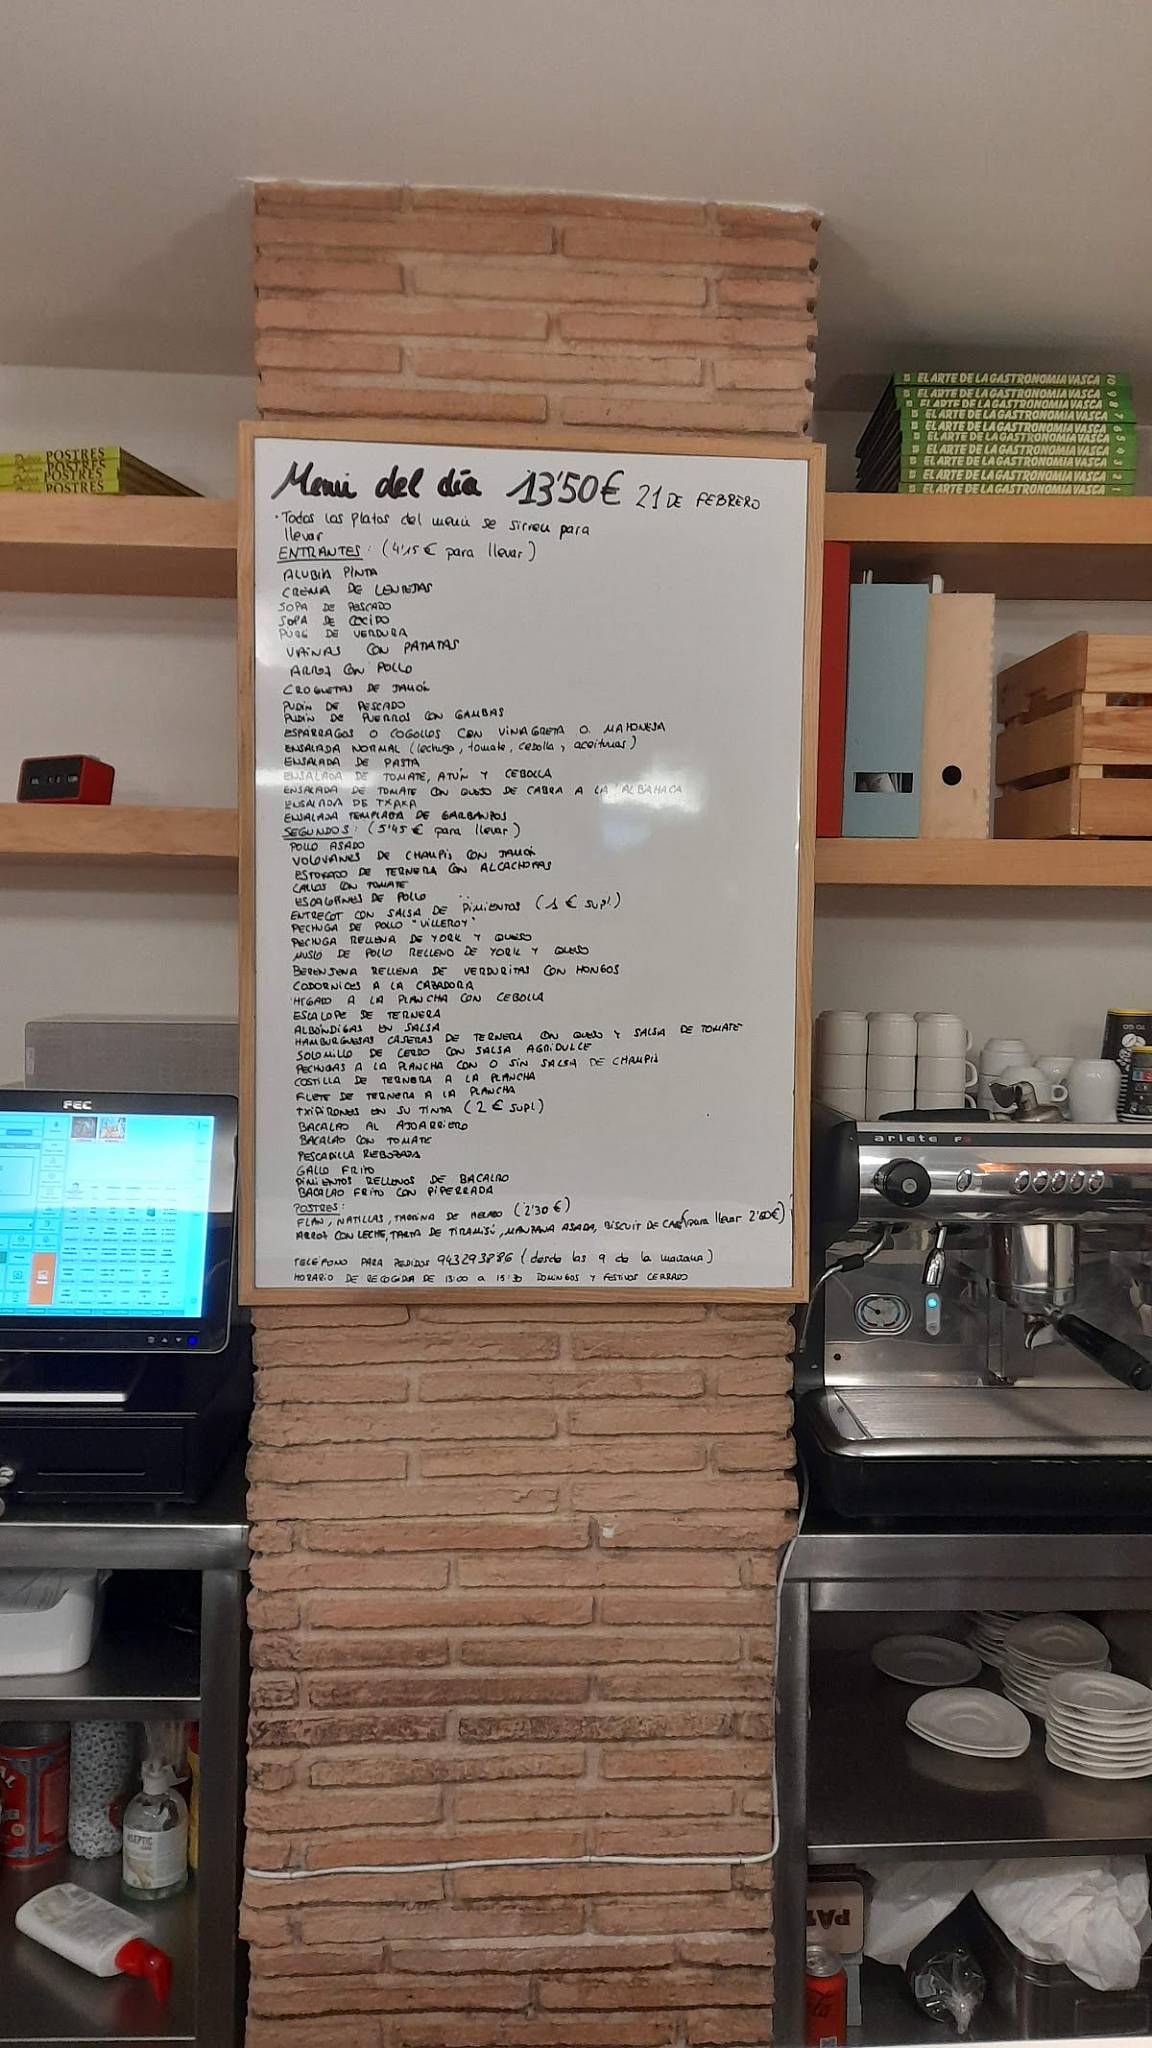 Menú del día 13'50€ 21 DE FEBRERO
·Todos los platos del menú se sirven para
llevar
ENTRANTES: (4'15€ para llevar)
ALUBIA PINTA
CREMA DE LENTEJAS
SOPA DE PESCADO
SOPA DE COCIDO
PURÉ DE VERDURA
VAINAS CON PATATAS
ARROZ CON POLLO
CROQUETAS DE JAMÓN
PUDIN DE PESCADO
PUDIN DE PUERROS CON GAMBAS
ESPARRAGOS O COGOLLOS CON VINAGRETA O MAHONESA
ENSALADA NORMAL (lechuga, tomate, cebolla, aceitunas)
ENSALADA DE PASTA
ENSALADA DE TOMATE, ATÚN Y CEBOLLA
ENSALADA DE TOMATE CON QUESO DE CABRA A LA ALBAHACA
ENSALADA DE TXAKA
ENSALADA TEMPLADA DE GARBANZOS
SEGUNDOS: (5'45€ para llevar)
POLLO ASADO
VOLOVANES DE CHAMPIS CON JAMÓN
ESTOFADO DE TERNERA CON ALCACHOFAS
CALLOS CON TOMATE
ESCALOPINES DE POLLO
ENTRECOT CON SALSA DE PIMIENTOS (1€ supl)
PECHUGA DE POLLO "VILLEROY"
PECHUGA RELLENA DE YORK Y QUESO
MUSLO DE POLLO RELLENO DE YORK Y QUESO
BERENJENA RELLENA DE VERDURITAS CON HONGOS
CODORNICES A LA CAZADORA
HIGADO A LA PLANCHA CON CEBOLLA
ESCALOPE DE TERNERA
ALBÓNDIGAS EN SALSA
HAMBURGUESAS CASERAS DE TERNERA CON QUESO Y SALSA DE TOMATE
SOLOMILLO DE CERDO CON SALSA AGRIDULCE
PECHUGAS A LA PLANCHA CON O SIN SALSA DE CHAMPIS
COSTILLA DE TERNERA A LA PLANCHA
FILETE DE TERNERA A LA PLANCHA
TXIPIRONES EN SU TINTA (2€ SUPL)
BACALAO AL AJOARRIERO
BACALAO CON TOMATE
PESCADILLA REBOZADA
GALLO FRITO
PIMIENTOS RELLENOS DE BACALAO
BACALAO FRITO CON PIPERRADA
POSTRES:
FLAN, NATILLAS, TARRINA DE HELADO (2'30€)
ARROZ CON LECHE, TARTA DE TIRAMISÚ, MANZANA ASADA, BISCUIT DE CAFÉ (para llevar 2'60€)
TELÉFONO PARA PEDIDOS 943293886 (desde las 9 de la mañana)
HORARIO DE RECOGIDA DE 13:00 a 15:30 DOMINGOS Y FESTIVOS CERRADO
POSTRES
POSTRES
POSTRES
POSTRES
EL ARTE DE LA GASTRONOMIA VASCA 10
EL ARTE DE LA GASTRONOMIA VASCA 9
EL ARTE DE LA GASTRONOMIA VASCA 8
EL ARTE DE LA GASTRONOMIA VASCA 7
EL ARTE DE LA GASTRONOMIA VASCA 6
EL ARTE DE LA GASTRONOMIA VASCA 5
EL ARTE DE LA GASTRONOMIA VASCA 4
EL ARTE DE LA GASTRONOMIA VASCA 3
EL ARTE DE LA GASTRONOMIA VASCA 2
EL ARTE DE LA GASTRONOMIA VASCA 1
FEC
ariete F3